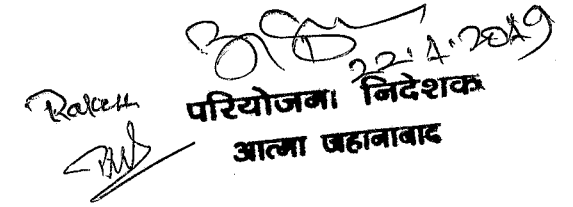 22.4.2019
Rakesh
परियोजना निदेशक
आत्मा जहानाबाद